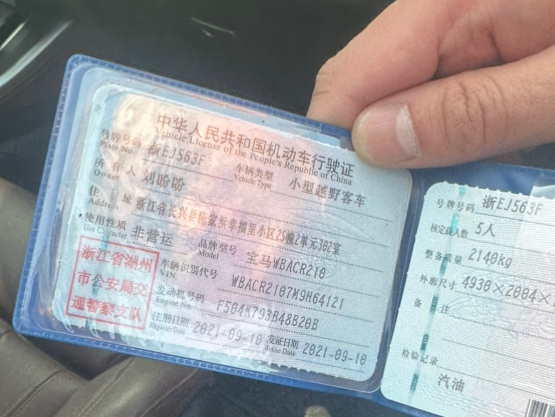 中华人民共和国机动车行驶证
Vehicle License of the People's Republic of China
号牌号码 浙EJ563F 车辆类型 小型越野客车
Plate No. Vehicle Type
所有人 刘盼盼
Owner
住址 浙江省长兴县 幸福里小区25幢2单元302室
Address
使用性质 非营运 品牌型号 宝马WBACR210
Use Character Model
浙江省湖州
市公安局交
通警察支队
车辆识别代号 WBACR2107M9H64121
VIN
发动机号码 F504K793B48B20B
Engine No.
注册日期 2021-09-10 发证日期 2021-09-10
Register Date Issue Date
号牌号码 浙EJ563F
核定载人数 5人
整备质量 2140kg
外廓尺寸 4930×2004×
备注
检验记录
汽油